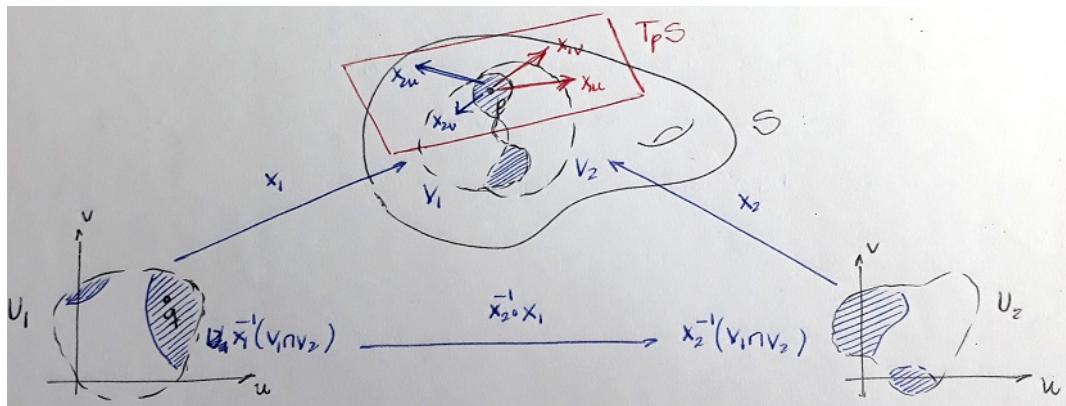 TpS
x₁ᵥ
x₂ᵤ
x₁ᵤ
p
x₂ᵥ
S
x₁
V₁
V₂
x₂
v
v
U₁
q
x₁⁻¹(V₁∩V₂)
x₂⁻¹∘x₁
x₂⁻¹(V₁∩V₂)
U₂
u
u